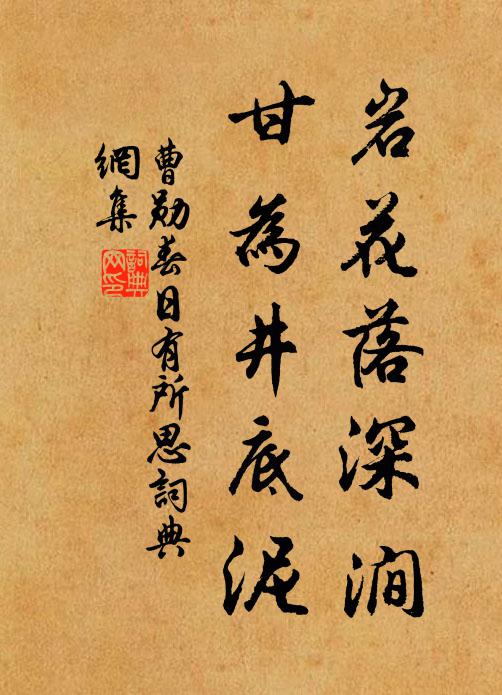 岩花落深涧
甘為井底泥
曹勋春日有所思詞典
網集
詞典
网印